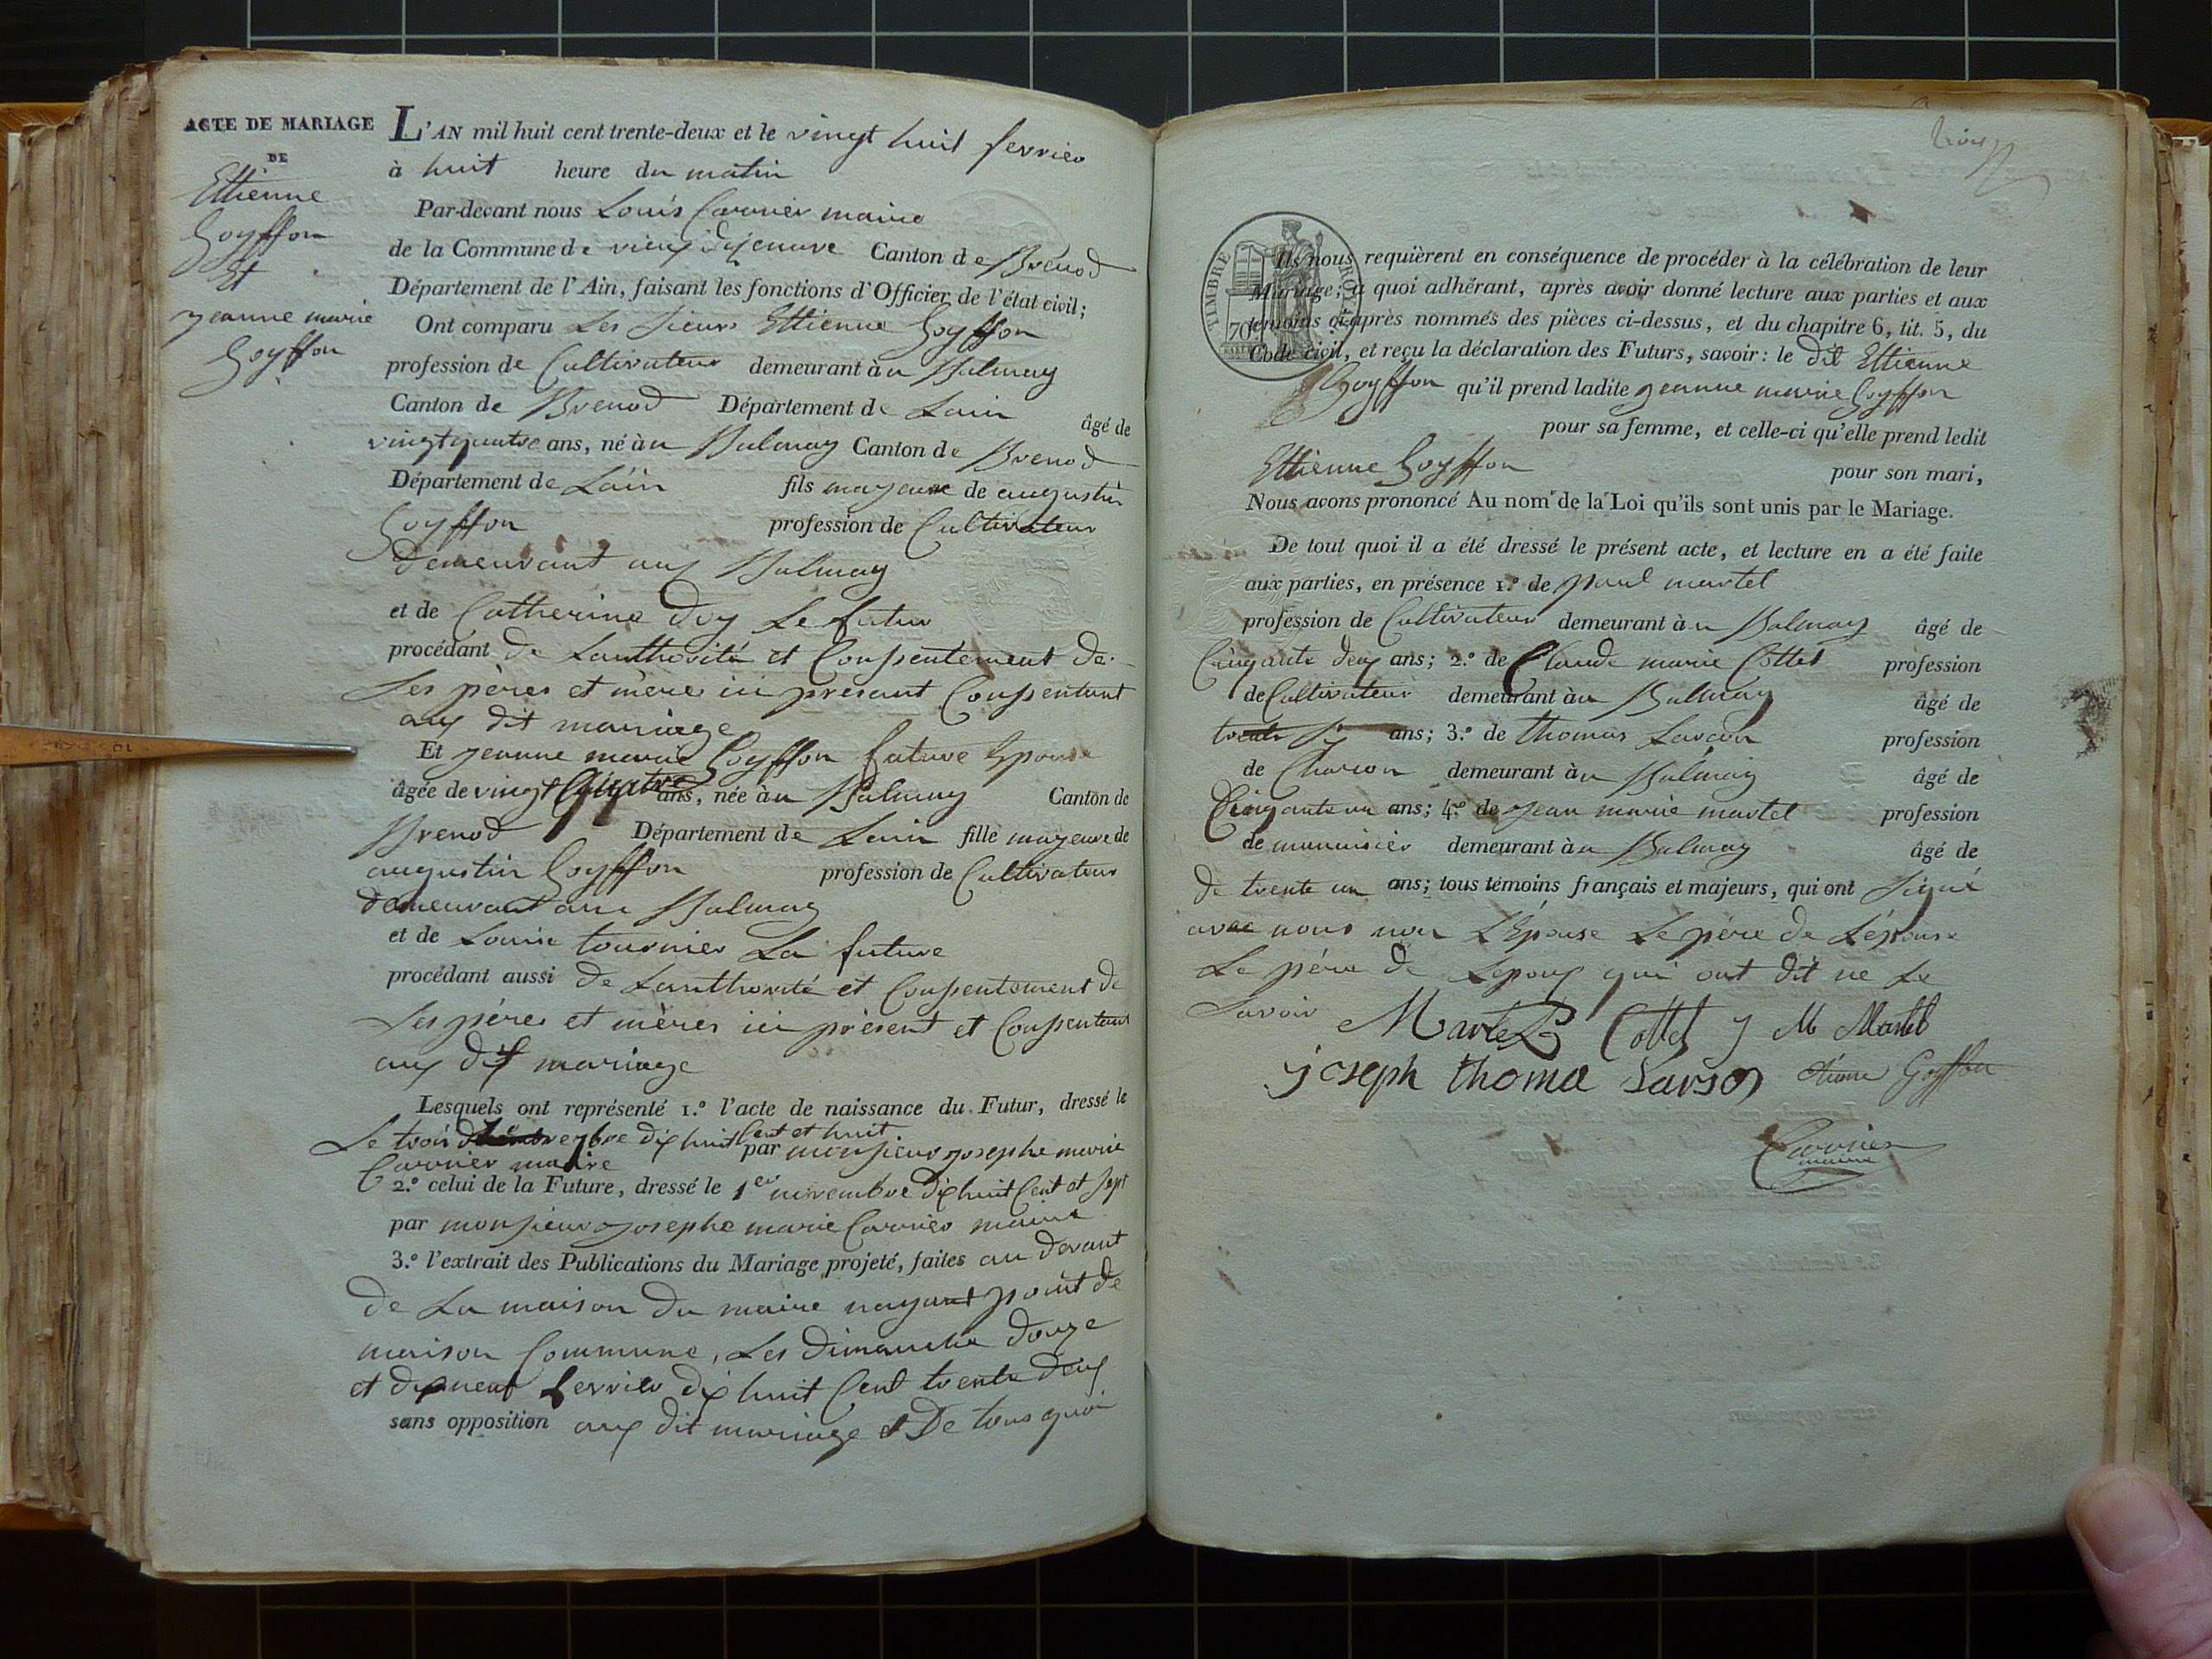 ACTE DE MARIAGE
DE
Ettienne
Goyffon
Et
jeanne marie
Goyffon
L'AN mil huit cent trente-deux et le vingt huit fevrier
à huit heure du matin
Par-devant nous Louis Carrier maire
de la Commune de vieux d'izenave Canton de Brenod
Département de l'Ain, faisant les fonctions d'Officier de l'état civil;
Ont comparu Les sieurs Ettienne Goyffon
profession de Cultivateur demeurant à u Balmay
Canton de Brenod Département de Lain âgé de
vingt quatre ans, né à u Balmay Canton de Brenod
Département de Lain fils mayeure de augustin
Goyffon profession de Cultivateur
demeurant aux Balmay
et de Catherine Juy Le futur
procédant de Lauthorité et Conssentement de
Ses pères et mère ici présant Conssentant
aux dit mariage
Et jeanne marie Goyffon future Epouse
âgée de vingt quatre ans, née à u Balmay Canton de
Brenod Département de Lain fille mayeure de
augustin Goyffon profession de Cultivateur
demeurant au Balmay
et de Louise tournier La future
procédant aussi de Lauthorité et Conssentement de
Ses pères et mères ici présent et Conssentant
aux dit mariage
Lesquels ont représenté 1.º l'acte de naissance du Futur, dressé le
Le trois 7bre dix huit Cent et huit par monsieur josephe marie
Carrier maire
2.º celui de la Future, dressé le 1er novembre dix huit Cent et sept
par monsieur josephe marie Carrier maire
3.º l'extrait des Publications du Mariage projeté, faites au devant
de La maison du maire nayant point de
maison Commune, Les dimanche douze
et dixneuf fevrier dix huit Cent trente deux
sans opposition aux dit mariage et De tous quoi
TIMBRE ROYAL
70
Ils nous requièrent en conséquence de procéder à la célébration de leur
Mariage; à quoi adhérant, après avoir donné lecture aux parties et aux
témoins ci-après nommés des pièces ci-dessus, et du chapitre 6, tit. 5, du
Code civil, et reçu la déclaration des Futurs, savoir: le dit Ettienne
Goyffon qu'il prend ladite jeanne marie Goyffon
pour sa femme, et celle-ci qu'elle prend ledit
Ettienne Goyffon pour son mari,
Nous avons prononcé Au nom de la Loi qu'ils sont unis par le Mariage.
De tout quoi il a été dressé le présent acte, et lecture en a été faite
aux parties, en présence 1.º de paul martel
profession de Cultivateur demeurant à u Balmay âgé de
Cinqante deux ans; 2.º de Claude marie Cottet profession
de Cultivateur demeurant à u Balmay âgé de
trente six ans; 3.º de thomas Larçon profession
de Charon demeurant à u Balmay âgé de
Cinqante un ans; 4.º de jean marie martel profession
de menuisier demeurant à u Balmay âgé de
de trente un ans; tous témoins français et majeurs, qui ont signé
avec nous non L'Epouse Le père de L'épouse
Le père de Lepoux qui ont dit ne Le
Savoir
Martel Cottet J M Martel
joseph thoma Larson étiene Goyffon
Carrier
maire